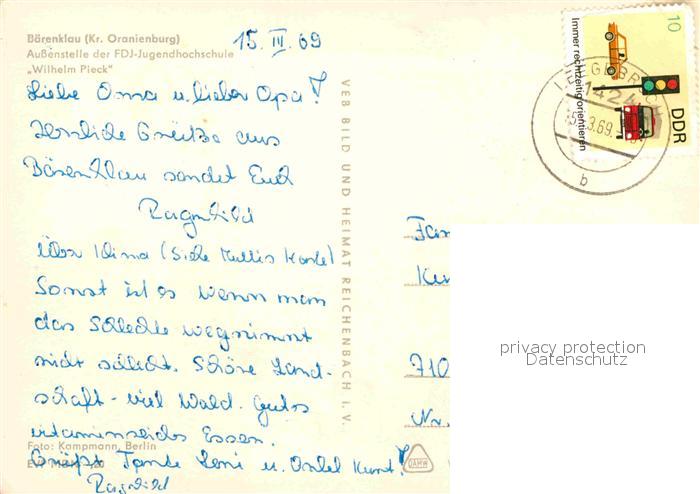 Bärenklau (Kr. Oranienburg)
Außenstelle der FDJ-Jugendhochschule
„Wilhelm Pieck"
15. III. 69
Liebe Oma u. lieber Opa!
Herzliche Grüße aus
Bärenklau sendet Euch
Ragnhild
Über Klima (siehe Muttis Karte)
Sonst ist es wenn man
das Schlechte wegnimmt
nicht schlecht. Schöne Land-
schaft - viel Wald. Gutes
vitaminreiches Essen.
Grüßt Tante Leni u. Onkel Kurt!
Ragnhild
Foto: Kampmann, Berlin
VEB BILD UND HEIMAT REICHENBACH i. V.
10
Immer rechtzeitig orientieren
DDR
1424
3.69.
b
Fam
710
Nr.
privacy protection
Datenschutz